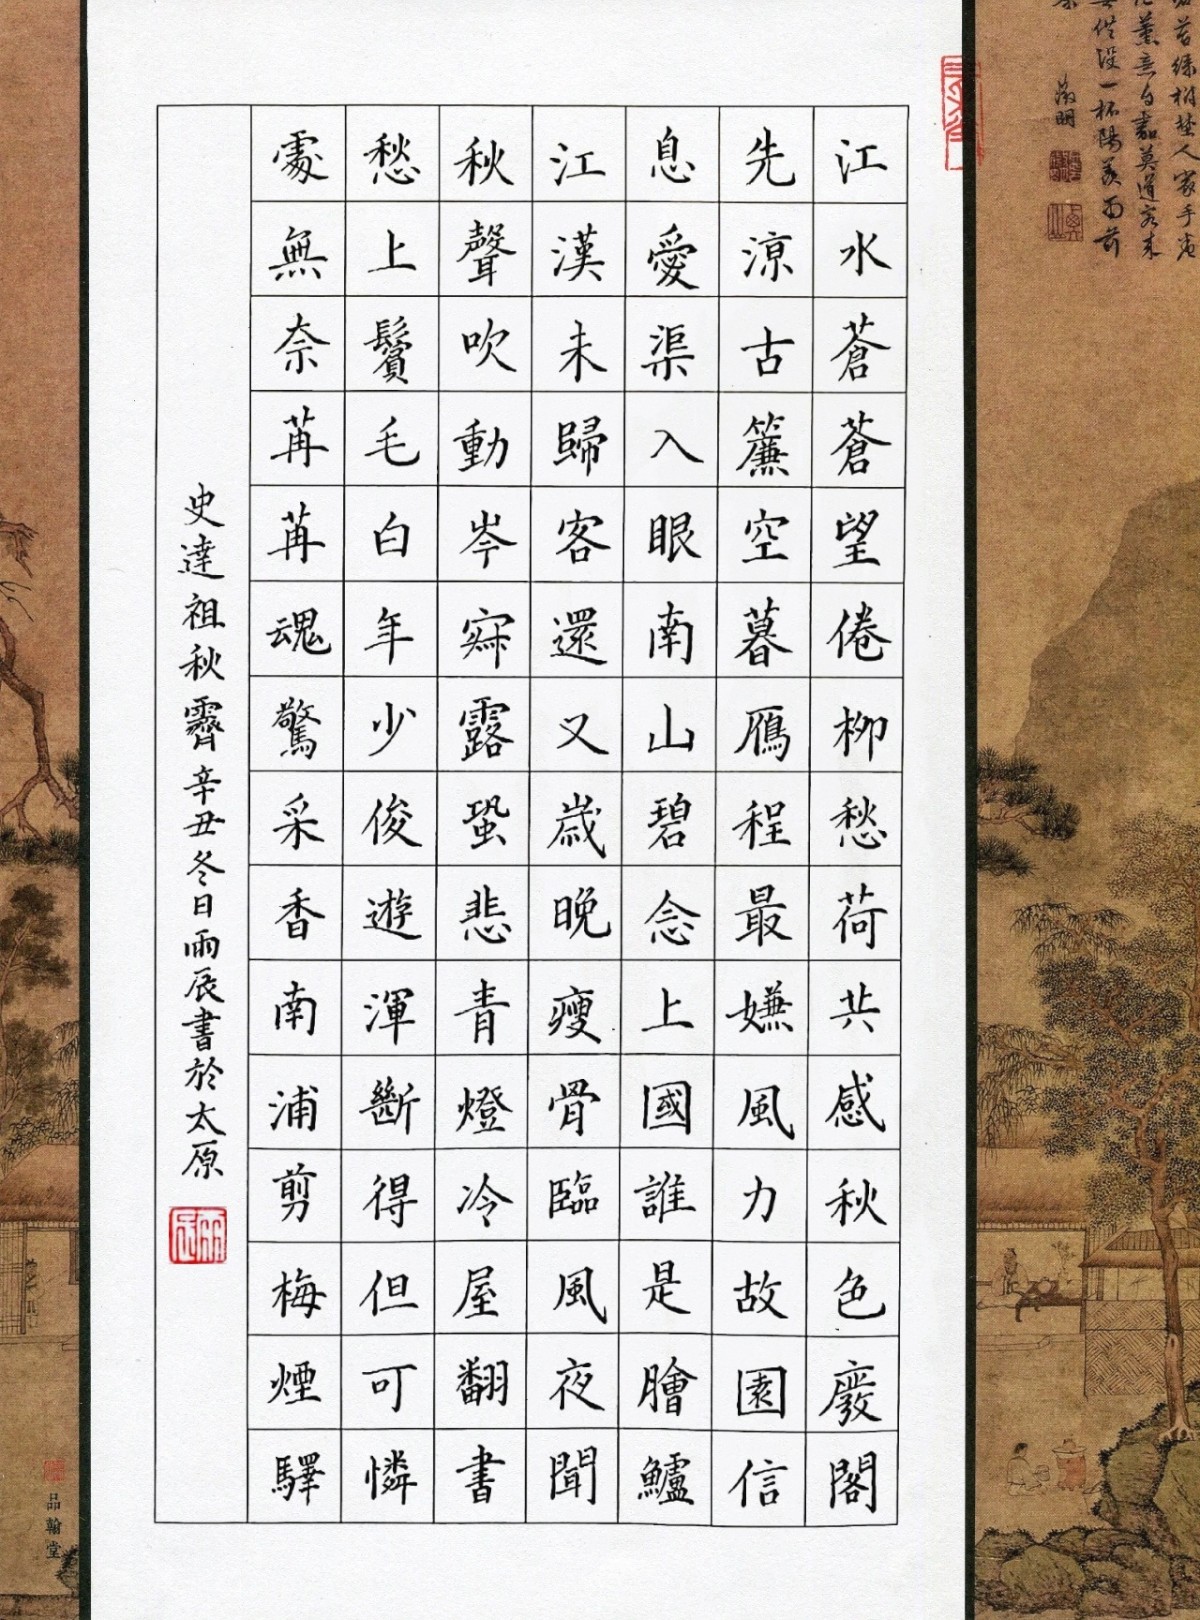 江水蒼蒼望倦柳愁荷共感秋色廢閣
先涼古簾空暮鴈程最嫌風力故園信
息愛渠入眼南山碧念上國誰是膾鱸
江漢未歸客還又歲晚瘦骨臨風夜聞
秋聲吹動岑寂露蛩悲青燈冷屋翻書
愁上鬢毛白年少俊遊渾斷得但可憐
處無奈苒苒魂驚采香南浦剪梅煙驛
史達祖秋霽辛丑冬日雨辰書於太原
雨辰
徵明
品翰堂